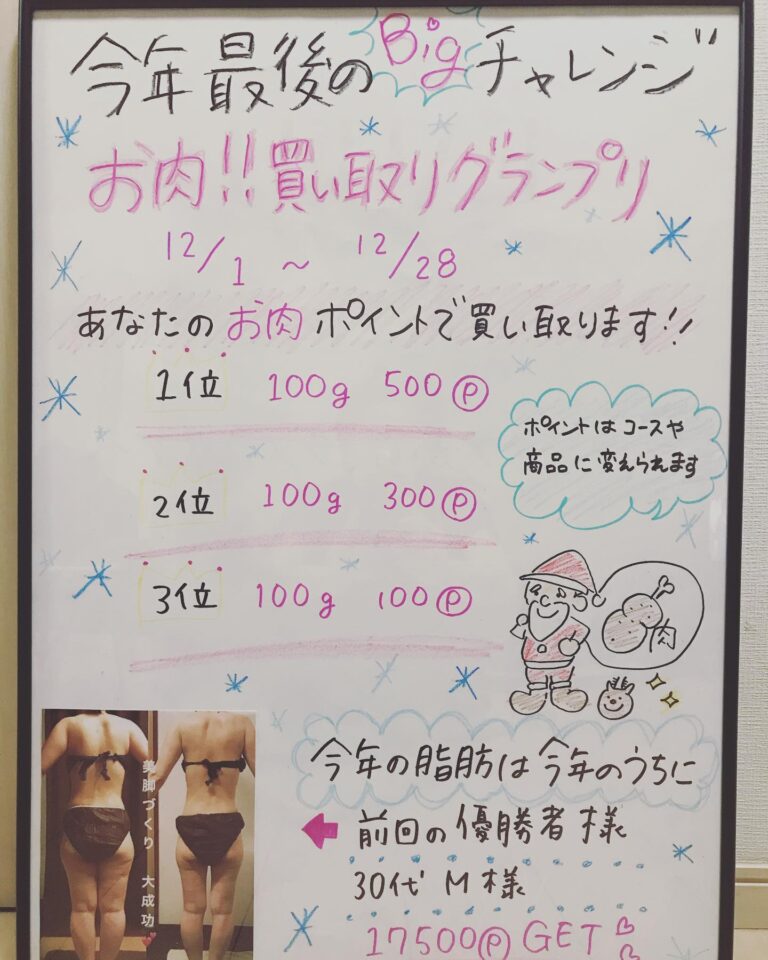 今年最後のBigチャレンジ
お肉!!買い取りグランプリ
12/1 ~ 12/28
あなたのお肉ポイントで買い取ります!!
1位 100g 500Ⓟ
ポイントはコースや
商品に変えられます
2位 100g 300Ⓟ
3位 100g 100Ⓟ
肉
今年の脂肪は今年のうちに
前回の優勝者様
30代 M様
17500Ⓟ GET
美脚づくり 大成功